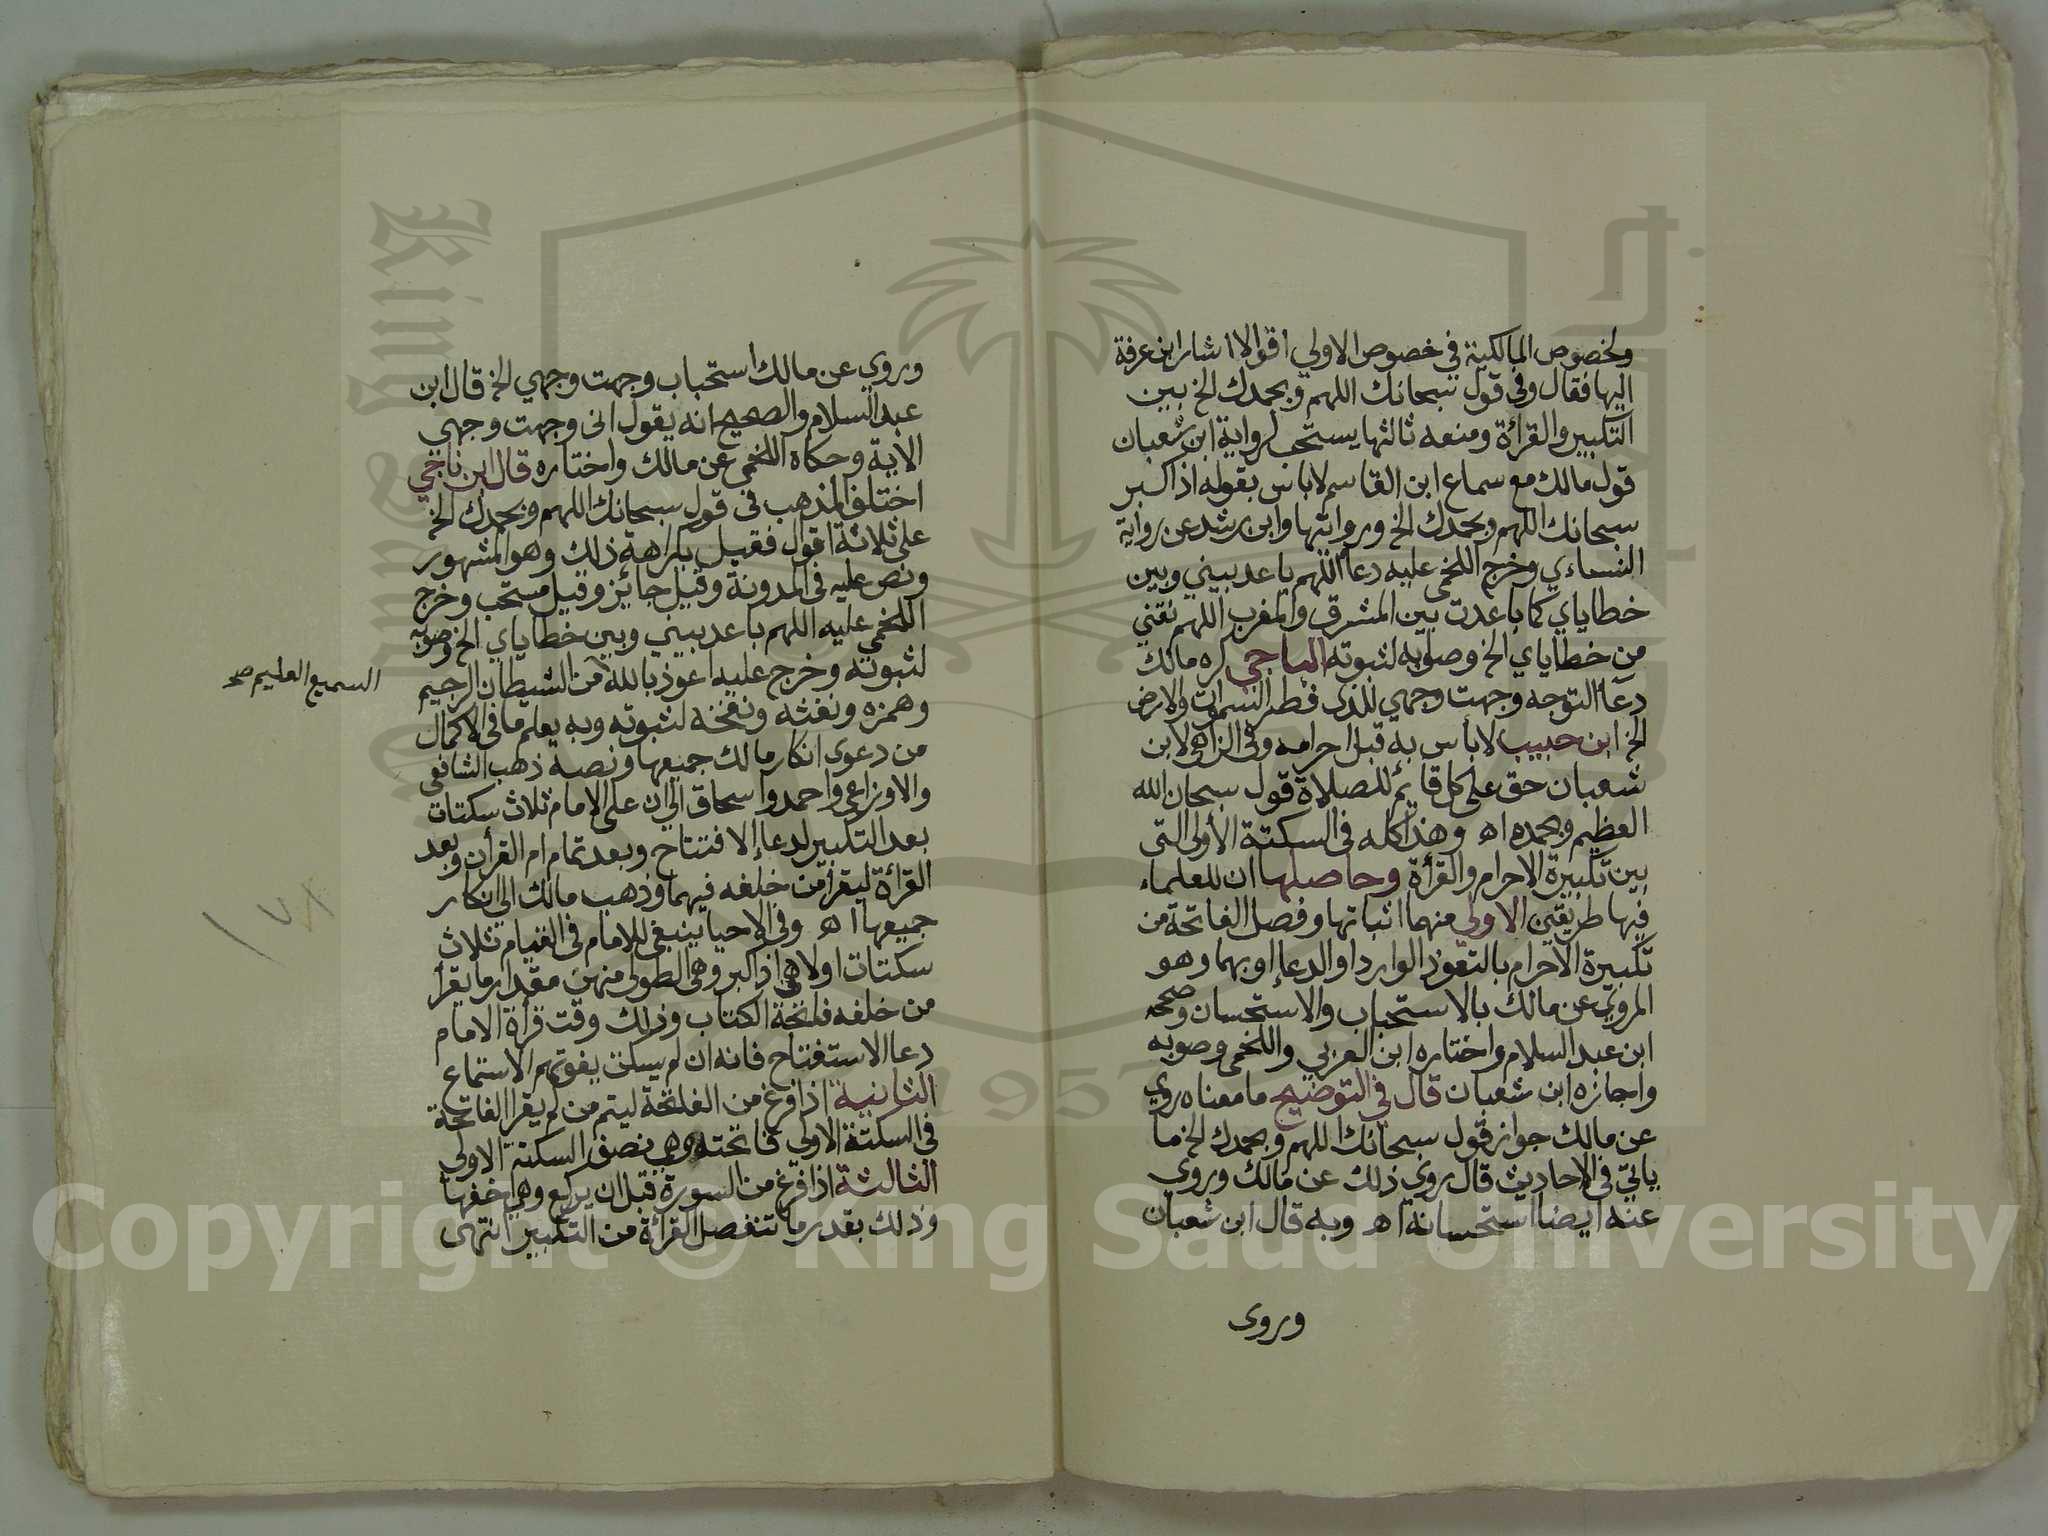 ولخصوص المالكية في خصوص الاولي اقوالا اشار ابن عرفة
اليها فقال وفي قول سبحانك اللهم وبحمدك الخ بين
التكبير والقرأة ومنعه ثالثها يستحب لرواية ابن شعبان
قول مالك مع سماع ابن القاسم لا باس بقوله اذا كبر
سبحانك اللهم وبحمدك الخ وروايتها وابن رشد عن رواية
النساءي وخرج اللخمي عليه دعا اللهم باعد بيني وبين
خطاياي كما باعدت بين المشرق والمغرب اللهم نقني
من خطاياي الخ وصوبه لثبوته الباجي كره مالك
دعا التوجه وجهت وجهي للذي فطر السموات والارض
الخ ابن حبيب لا بأس به قبل احرامه وفي الزاهي لابن
شعبان حق على كل قائم للصلاة قول سبحان الله
العظيم وبحمده اه وهذا كله في السكتة الأولى التي
بين تكبيرة الاحرام والقرأة وحاصلها ان للعلماء
فيها طريقين الاولي منهما اثباتها وفصل الفاتحة من
تكبيرة الاحرام بالتعوذ الوارد او الدعاء او بهما وهو
المروي عن مالك بالاستحباب والاستحسان وصححه
ابن عبد السلام واختاره ابن العربي واللخمي وصوبه
واجازه ابن شعبان قال في التوضيح ما معناه روي
عن مالك جواز قول سبحانك اللهم وبحمدك الخ ما
ياتي في الاحاديث قال روي ذلك عن مالك وروي
عنه ايضا استحسانه اه وبه قال ابن شعبان
وروى
وروي عن مالك استحباب وجهت وجهي الخ قال ابن
عبد السلام والصحيح انه يقول اني وجهت وجهي
الاية وحكاه اللخمي عن مالك واختاره قال ابن ناجي
اختلف المذهب في قول سبحانك اللهم وبحمدك الخ
على ثلاثة اقول فقيل بكراهة ذلك وهو المشهور
ونص عليه في المدونة وقيل جائز وقيل مستحب وخرج
اللخمي عليه اللهم باعد بيني وبين خطاياي الخ وصوبه
لثبوته وخرج عليه اعوذ بالله من الشيطان الرجيم
السميع العليم صح
وهمزه ونفثه ونفخه لثبوته وبه يعلم ما في الاكمال
من دعوى انكار مالك جميعها ونصه ذهب الشافعي
والاوزاعي واحمد واسحاق الي ان على الامام ثلاث سكتات
بعد التكبير لدعاء الافتتاح وبعد تمام ام القرأن وبعد
القرائة ليقرأ من خلفه فيهما وذهب مالك الي انكار
جميعها اه وفي الاحيا ينبغي للامام في القيام ثلاث
سكتات اولاهي اذا كبر وهي الطولى منهن مقدار ما يقرأ
من خلفه فاتحة الكتاب وذلك وقت قرأة الامام
دعا الاستفتاح فانه ان لم يسكت يفوتهم الاستماع
الثانية اذا فرغ من الفاتحة ليتم من لم يقرا الفاتحة
في السكتة الاولى فاتحته وهي نصف السكتة الاولي
الثالثة اذا فرغ من السورة قبل ان يركع وهي اخفها
وذلك بقدر ما تنفصل القرأة من التكبير انتهى
١٧٨
King Saud University
1957
Copyright © King Saud University